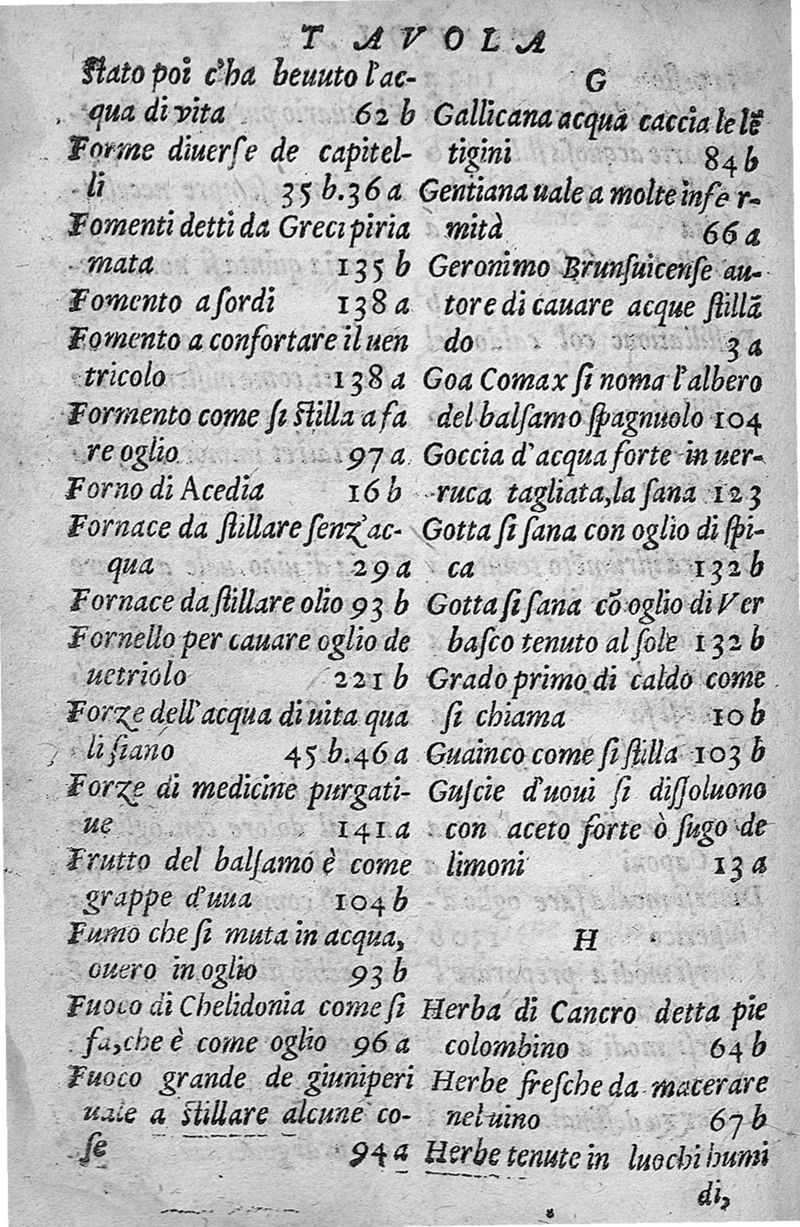 TAVOLA
ſtato poi c'ha beuuto l'ac-
qua di vita 62 b
Forme diuerſe de capitel-
li 35 b. 36 a
Fomenti detti da Greci piria
mata 135 b
Fomento a ſordi 138 a
Fomento a confortare il uen
tricolo 138 a
Formento come ſi ſtilla a fa
re oglio 97 a
Forno di Acedia 16 b
Fornace da ſtillare ſenz'ac-
qua 29 a
Fornace da ſtillare olio 93 b
Fornello per cauare oglio de
uetriolo 221 b
Forze dell'acqua di uita qua
li ſiano 45 b. 46 a
Forze di medicine purgati-
ue 141 a
Frutto del balſamo è come
grappe d'uua 104 b
Fumo che ſi muta in acqua,
ouero in oglio 93 b
Fuoco di Chelidonia come ſi
fa, che è come oglio 96 a
Fuoco grande de giuniperi
uale a ſtillare alcune co-
ſe 94 a
G
Gallicana acqua caccia le lẽ
tigini 84 b
Gentiana uale a molte infer-
mità 66 a
Geronimo Brunſuicenſe au-
tore di cauare acque ſtillã
do 3 a
Goa Comax ſi noma l'albero
del balſamo ſpagnuolo 104
Goccia d'acqua forte in uer-
ruca tagliata, la ſana 123
Gotta ſi ſana con oglio di ſpi-
ca 132 b
Gotta ſi ſana cõ oglio di Ver
baſco tenuto al ſole 132 b
Grado primo di caldo come
ſi chiama 10 b
Guainco come ſi ſtilla 103 b
Guſcie d'uoui ſi diſſoluono
con aceto forte ò ſugo de
limoni 13 a
H
Herba di Cancro detta pie
colombino 64 b
Herbe freſche da macerare
nel uino 67 b
Herbe tenute in luochi humi
di,